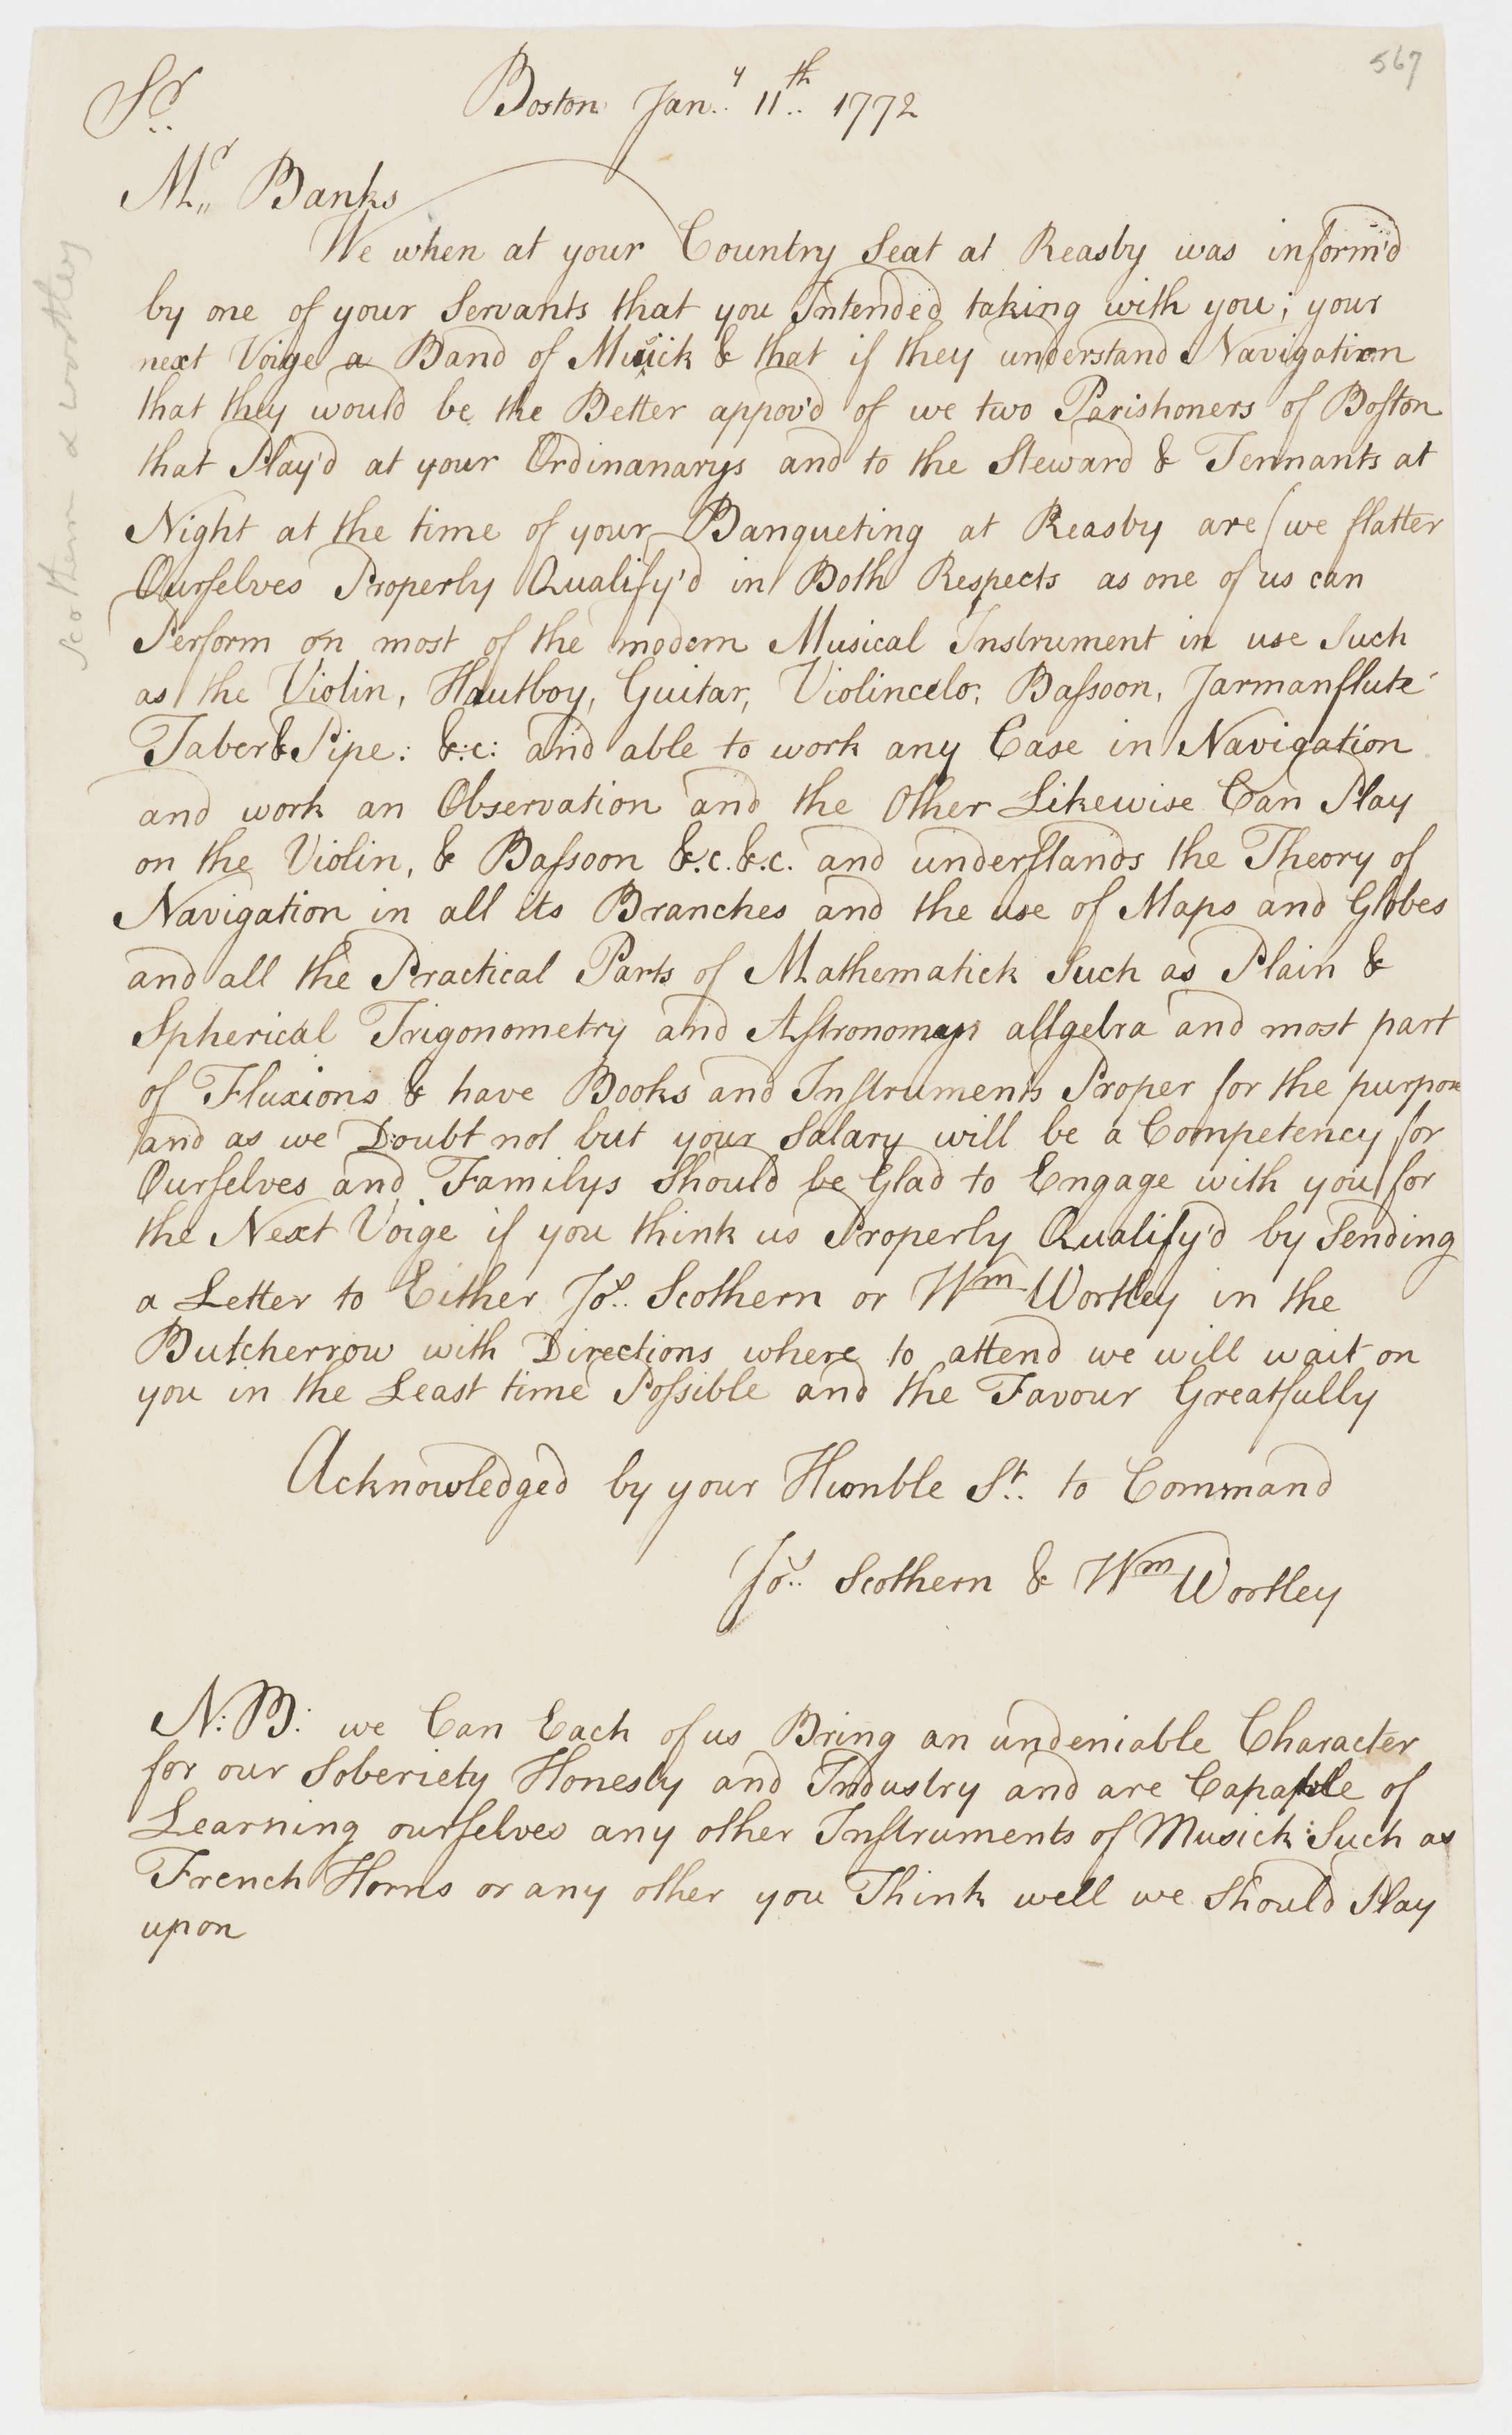 567
Sr.. Boston Jan..y 11..th 1772
Mr,, Banks
We when at your Country Seat at Reasby was inform'd
by one of your Servants that you Intended taking with you; your
next Voige a Band of Musick & that if they understand Navigation
that they would be the Better appov'd of we two Parishoners of Boston
that Play'd at your Ordinanarys and to the Steward & Tennants at
Night at the time of your Banqueting at Reasby are (we flatter
Ourselves Properly Qualify'd in Both Respects as one of us can
Perform on most of the modern Musical Instrument in use Such
as the Violin, Hautboy, Guitar, Violincelo, Bassoon, Jarmanflute
Taber & Pipe: &:c: and able to work any Case in Navigation
and work an Observation and the Other Likewise Can Play
on the Violin, & Bassoon &.c.&.c. and understands the Theory of
Navigation in all its Branches and the use of Maps and Globes
and all the Practical Parts of Mathematick Such as Plain &
Spherical Trigonometry and Astronomy allgebra and most part
of Fluxions & have Books and Instruments Proper for the purpose
and as we Doubt not but your Salary will be a Competency for
Ourselves and Familys Should be Glad to Engage with you for
the Next Voige if you think us Properly Qualify'd by Sending
a Letter to Either Jos.. Scothern or Wm Wortley in the
Butcherrow with Directions where to attend we will wait on
you in the Least time Possible and the Favour Greatfully
Acknowledged by your Humble St.. to Command
Jos.. Scothern & Wm Wortley
N:B: we Can Each of us Bring an undeniable Character
for our Soberiety Honesty and Industry and are Capable of
Learning ourselves any other Instruments of Musick: Such as
French Horns or any other you Think well we Should Play
upon
Scothern & Wortley